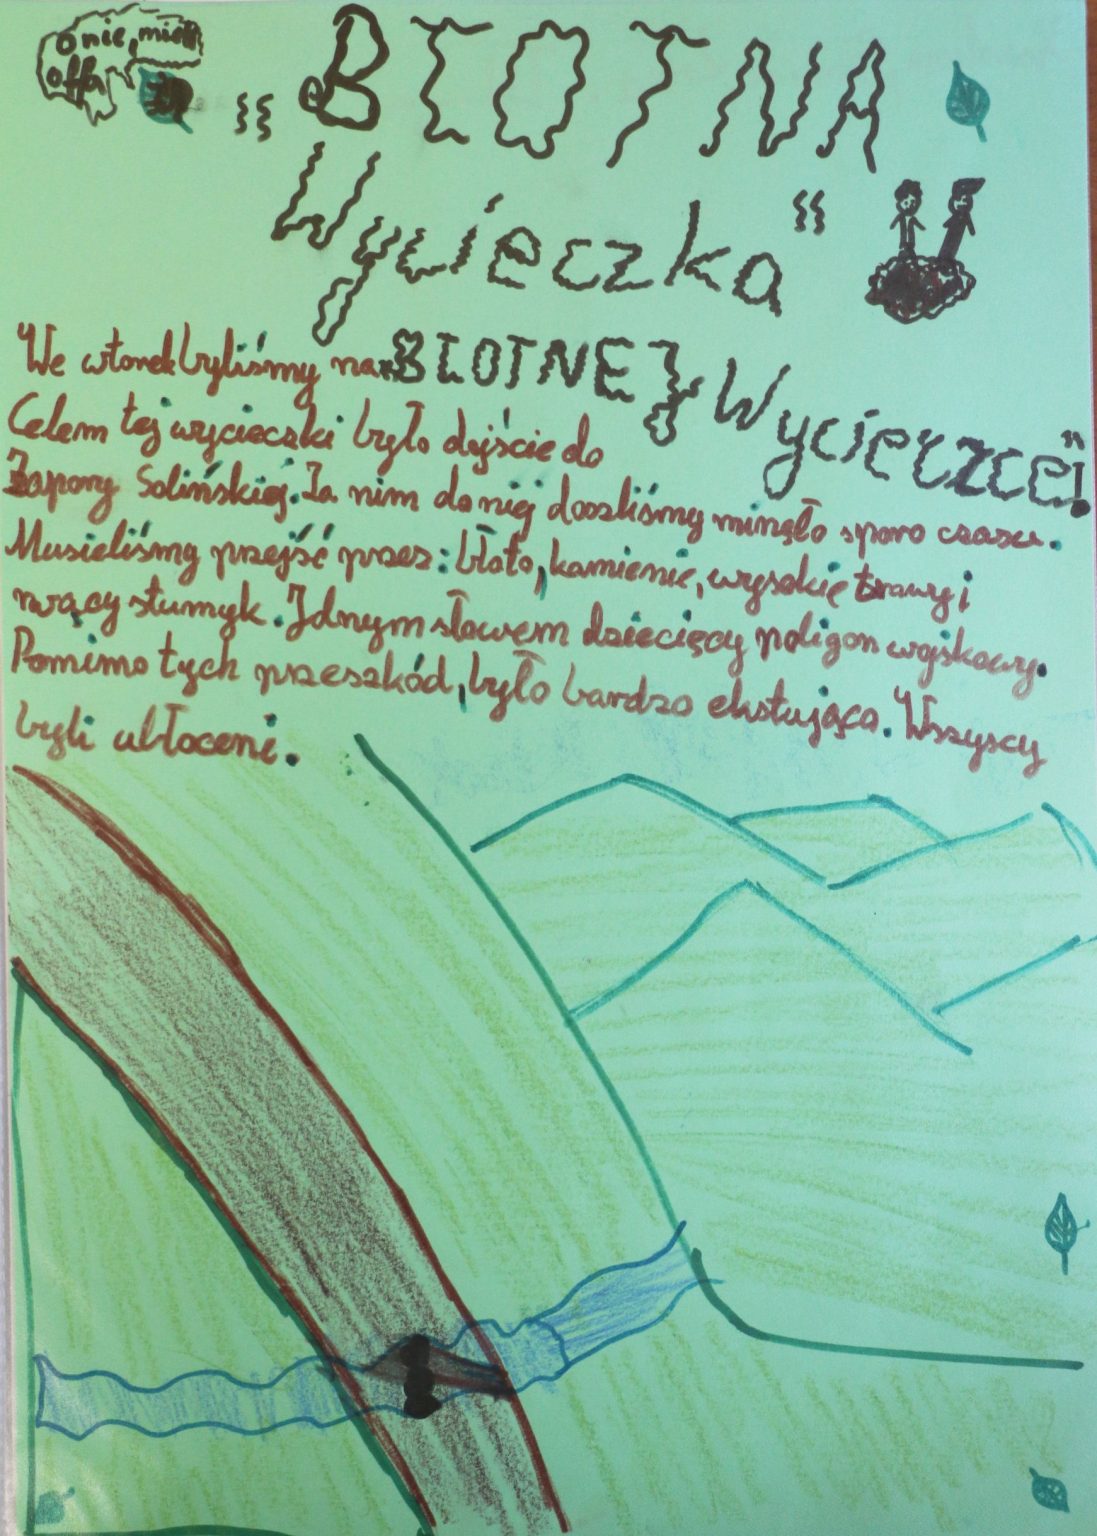 o nie, mioł
offa
"BŁOTNA
Wycieczka"
We wtorek byliśmy na "BŁOTNEJ Wycieczce"!
Celem tej wycieczki było dojście do
Zapory Solińskiej. Za nim do niej doszliśmy minęło sporo czasu.
Musieliśmy przejść przez: błoto, kamienie, wysokie trawy i
rwący stumyk. Jdnym słowem dziecięcy poligon wojskowy.
Pomimo tych przeszkód, było bardzo ekstująco. Wszyscy
byli ubłoceni.